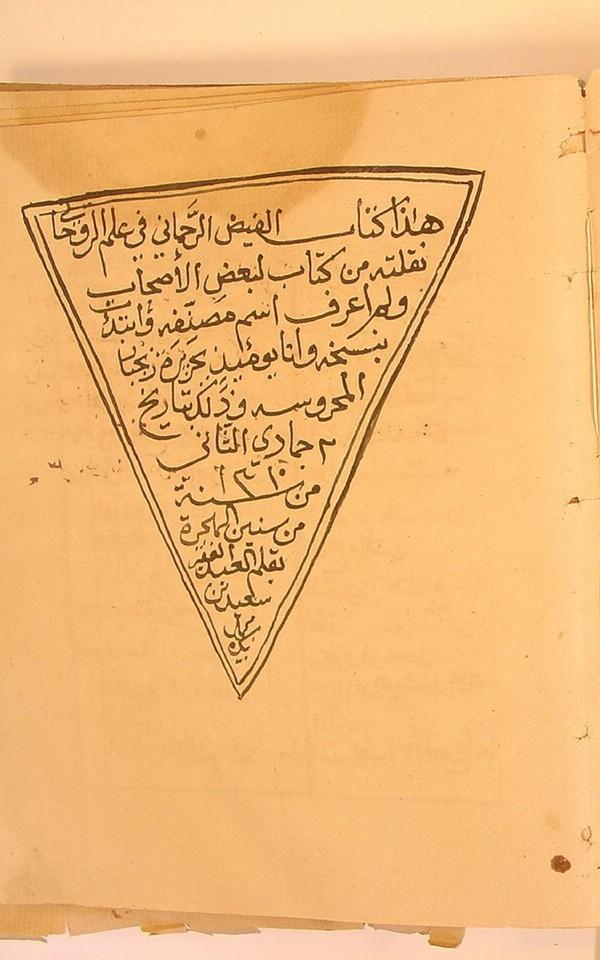 هذا كتاب الفيض الرحماني في علم الروحاني
نقلته من كتاب لبعض الأصحاب
ولم اعرف اسم مصنّفه وابتدأت
بنسخه وانا يومئيذٍ بجزيرة زنجبار
المحروسه وذلك بتاريخ
٢ جمادى الثاني
من سنة
من سنين الهجرة
بقلم العبد الفقير
سعيد بن
بيده